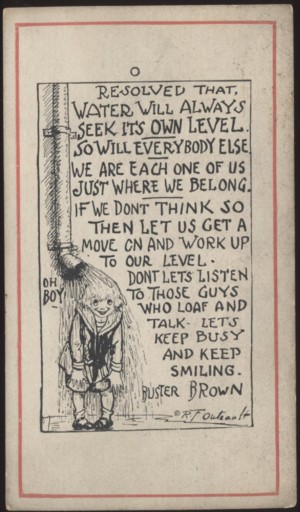 RESOLVED THAT,
WATER WILL ALWAYS
SEEK ITS OWN LEVEL.
SO WILL EVERYBODY ELSE.
WE ARE EACH ONE OF US
JUST WHERE WE BELONG.
IF WE DONT THINK SO
THEN LET US GET A
MOVE ON AND WORK UP
TO OUR LEVEL.
DONT LETS LISTEN
TO THOSE GUYS
WHO LOAF AND
TALK- LETS
KEEP BUSY
AND KEEP
SMILING.
BUSTER BROWN
OH
BOY
© R.F. Outcault